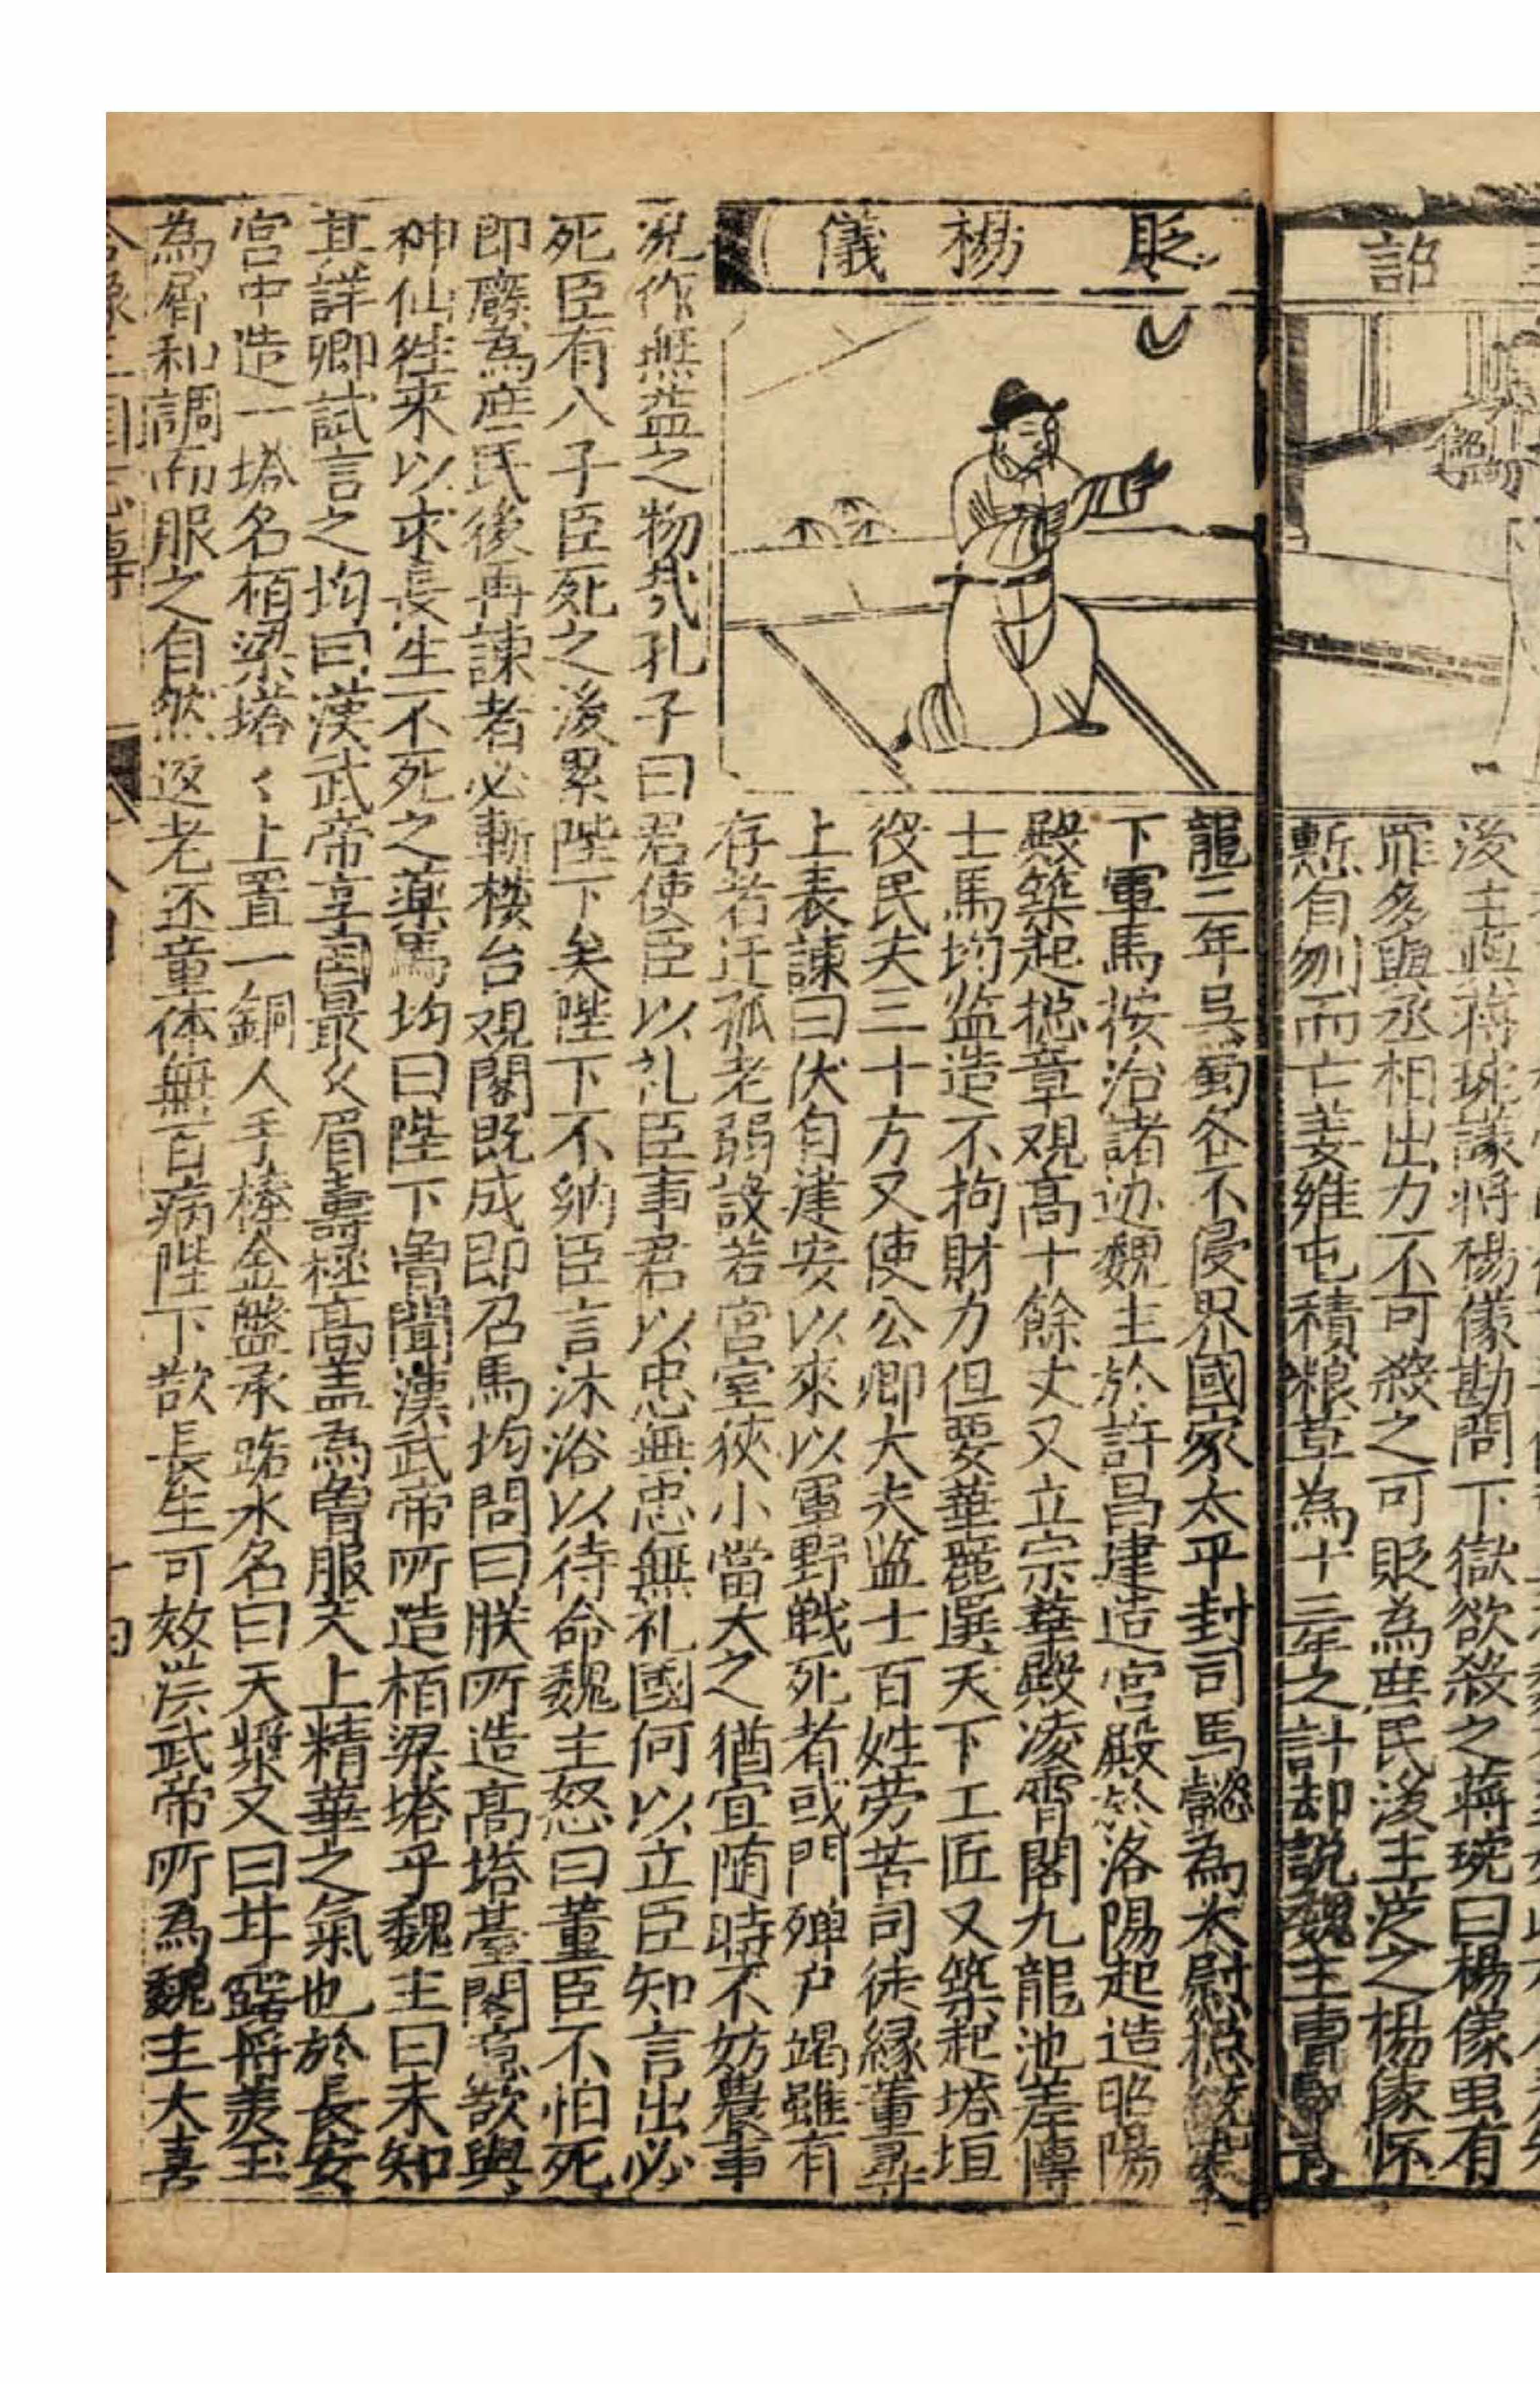 詔
後主與蔣琬議將楊儀勘問下獄欲殺之蔣琬曰楊儀虽有
罪多與丞相出力不可殺之可貶為庶民後主從之楊儀怀
慙自刎而亡姜維屯積粮草為十三年之計却説魏主曹
貶楊儀
龍三年吳蜀各不侵界國家太平封司馬懿為太尉摠
下軍馬按治諸边魏主於許昌建造宮殿於洛陽起造昭陽
殿築起摠章观高十餘丈又立宗華殿凌霄閣九龍池差博
士馬均监造不拘財力但要華麗選天下工匠又築起塔垣
役民夫三十方又使公卿大夫监士百姓劳苦司徒緣董尋
上表諫曰伏自建安以來以軍野戰死者或門殫户竭雖有
存者迋孤老弱設若宮室狹小當大之猶宜随時不妨農事
况作無益之物哉孔子曰君使臣以礼臣事君以忠無忠無礼國何以立臣知言出必
死臣有八子臣死之後累陛下矣陛下不納臣言沐浴以待命魏主怒曰董臣不怕死
即廢為庶民後再諫者必斬楼台观閣既成即召馬均問曰朕所造高塔臺閣意欲與
神仙徃来以求長生不死之藥馬均曰陛下曽聞漢武帝所造栢梁塔乎魏主曰未知
其詳卿試言之均曰漢武帝享国最久眉壽極高盖為曽服天上精華之氣也於長安
宮中造一塔名栢梁塔〻上置一銅人手棒金盤承露水名曰天漿又曰甘露將美玉
為屑和調而服之自然返老还童体無百病陛下欲長生可效漢武帝所為魏主大喜